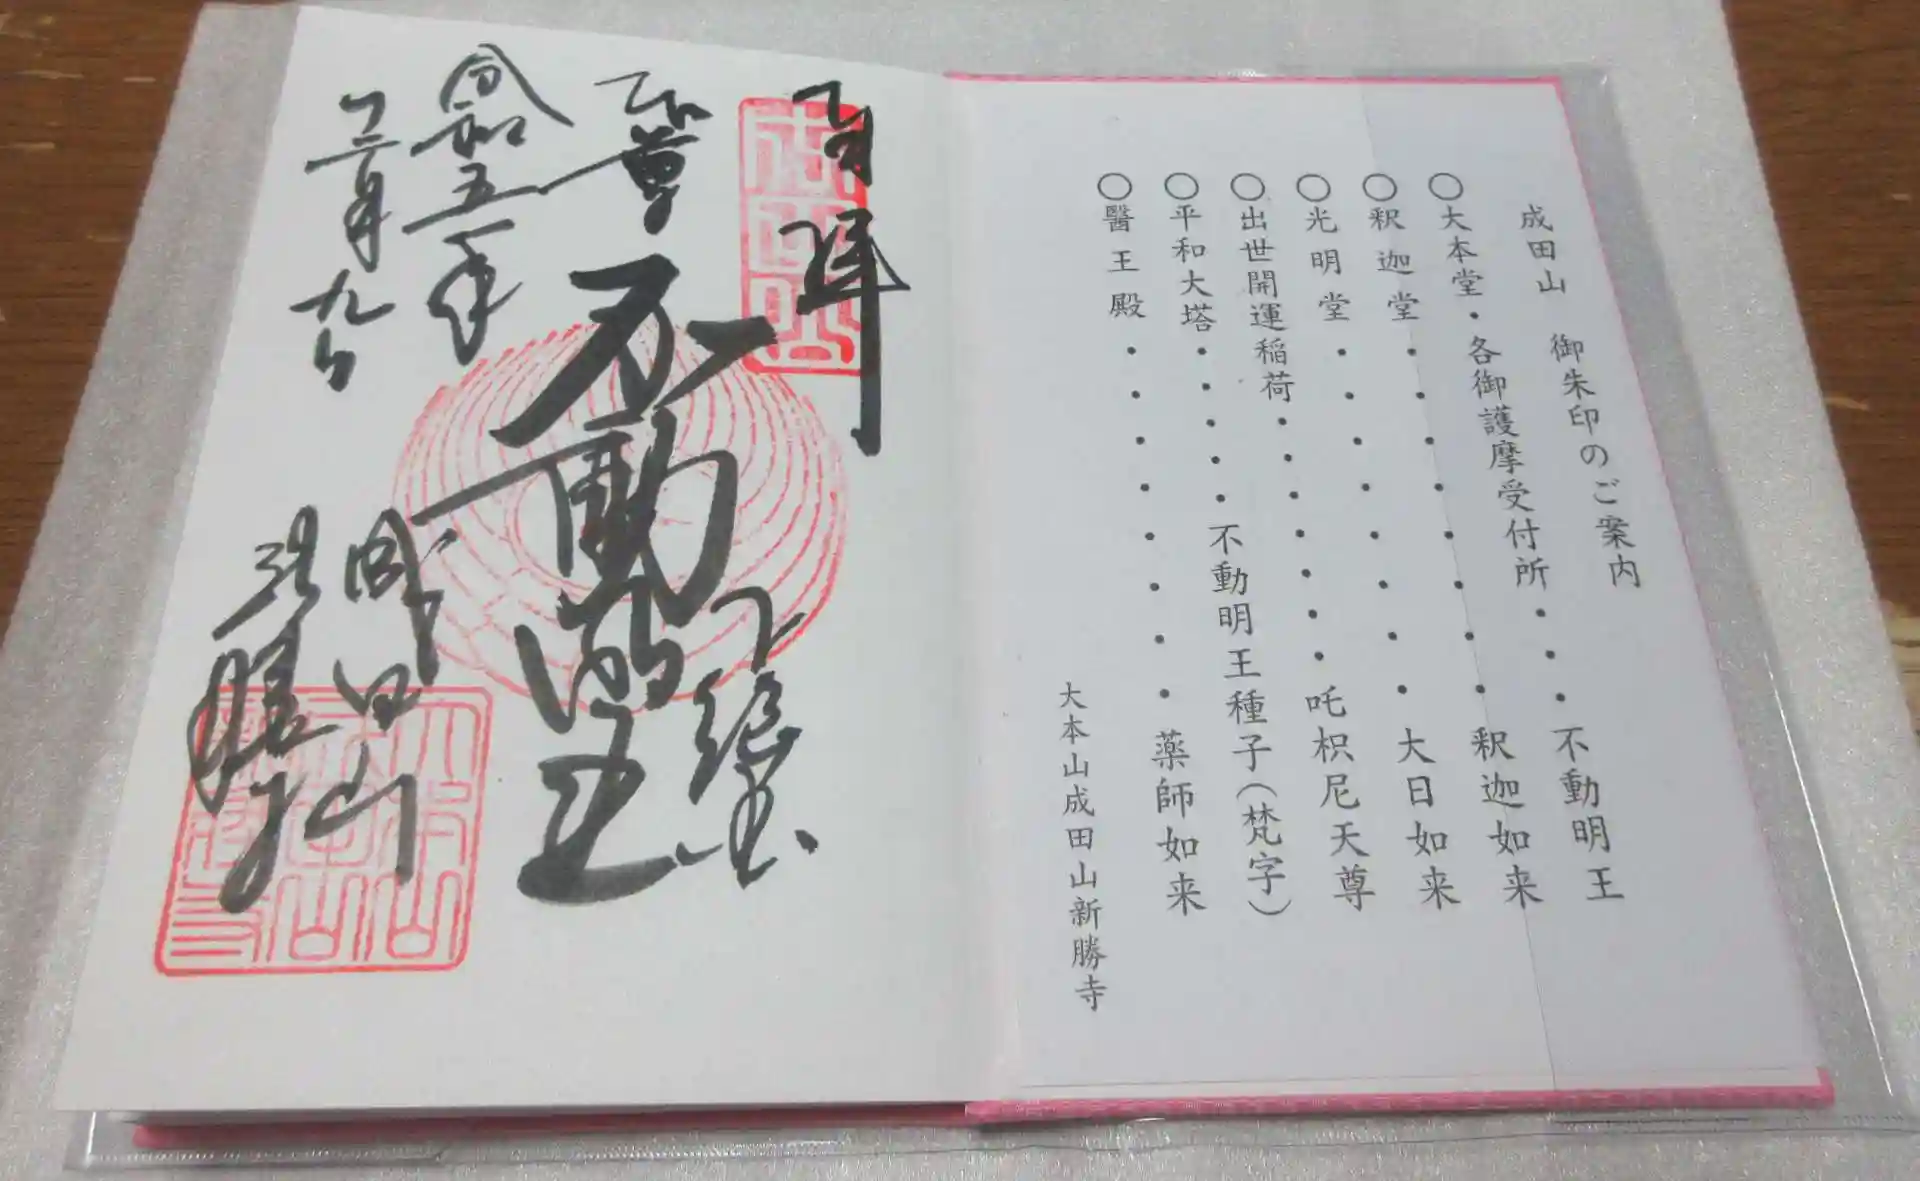 成田山 御朱印のご案内
○大本堂・各御護摩受付所・・・不動明王
○釈迦堂・・・・・・・・釈迦如来
○光明堂・・・・・・・・大日如来
○出世開運稲荷・・・・・・吒枳尼天尊
○平和大塔・・・・・不動明王種子(梵字)
○醫王殿・・・・・・・・薬師如来
大本山成田山新勝寺
奉拝
本尊
不動明王
令和五年
十二月九日
成田山
新勝寺